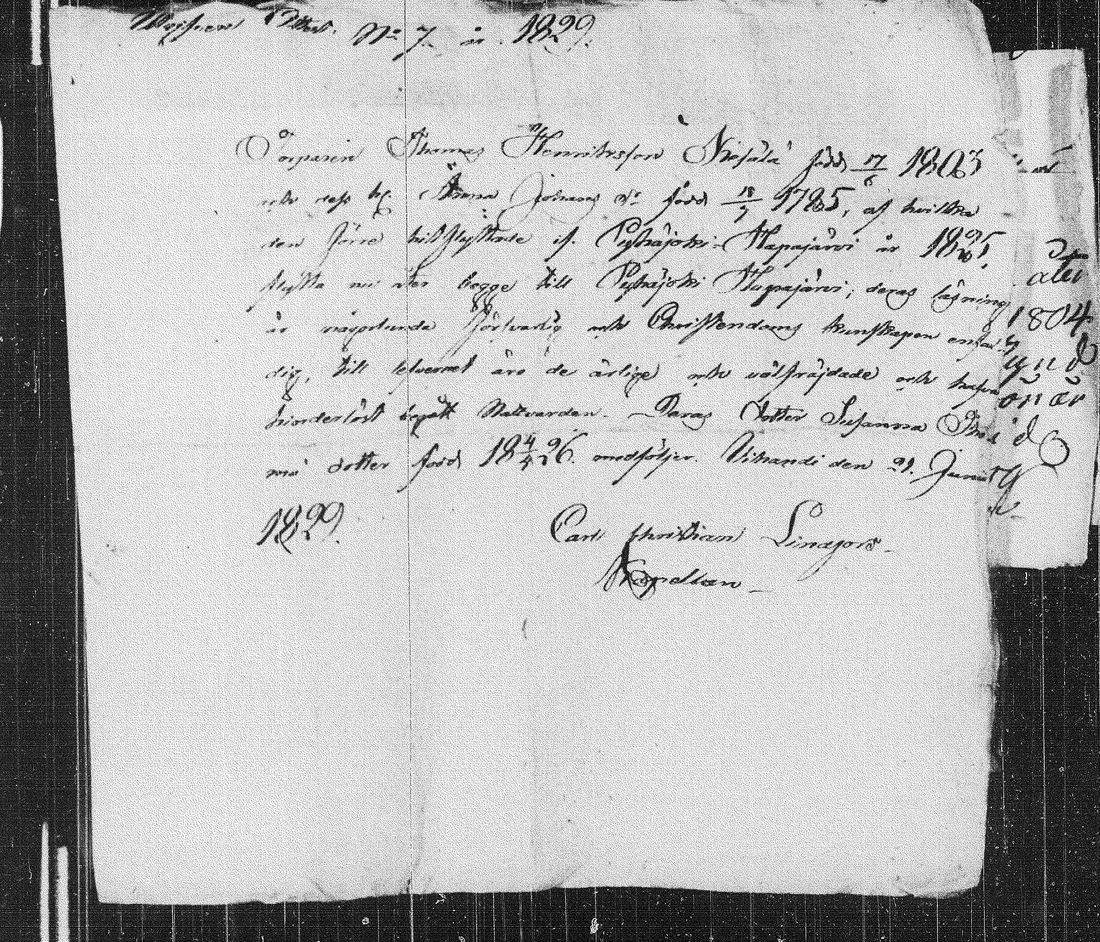 N:o 7. år 1829.
Torparen Thomas Henriksson född 17/6 1803
och dess h. Anna Johans dr född 18/7 1785, af hvilka
den förre hitflyttade if. Pyhäjoki Haapajärvi år 1825,
flytta nu åter begge till Pyhäjoki Haapajärvi; deras läsning
är någorlunda försvarlig och Christendoms kunskapen enfal-
dig, till lefvernet äro de ärlige och välfräjdade och hafva
hinderlöst begått Nattvarden. Deras dotter Susanna Tho-
mæ dotter född 18 4/4 26. medföljer. Vihandi den 21. Junii
1829.
Carl Christian Lindfors
Kapellan
åter
1804